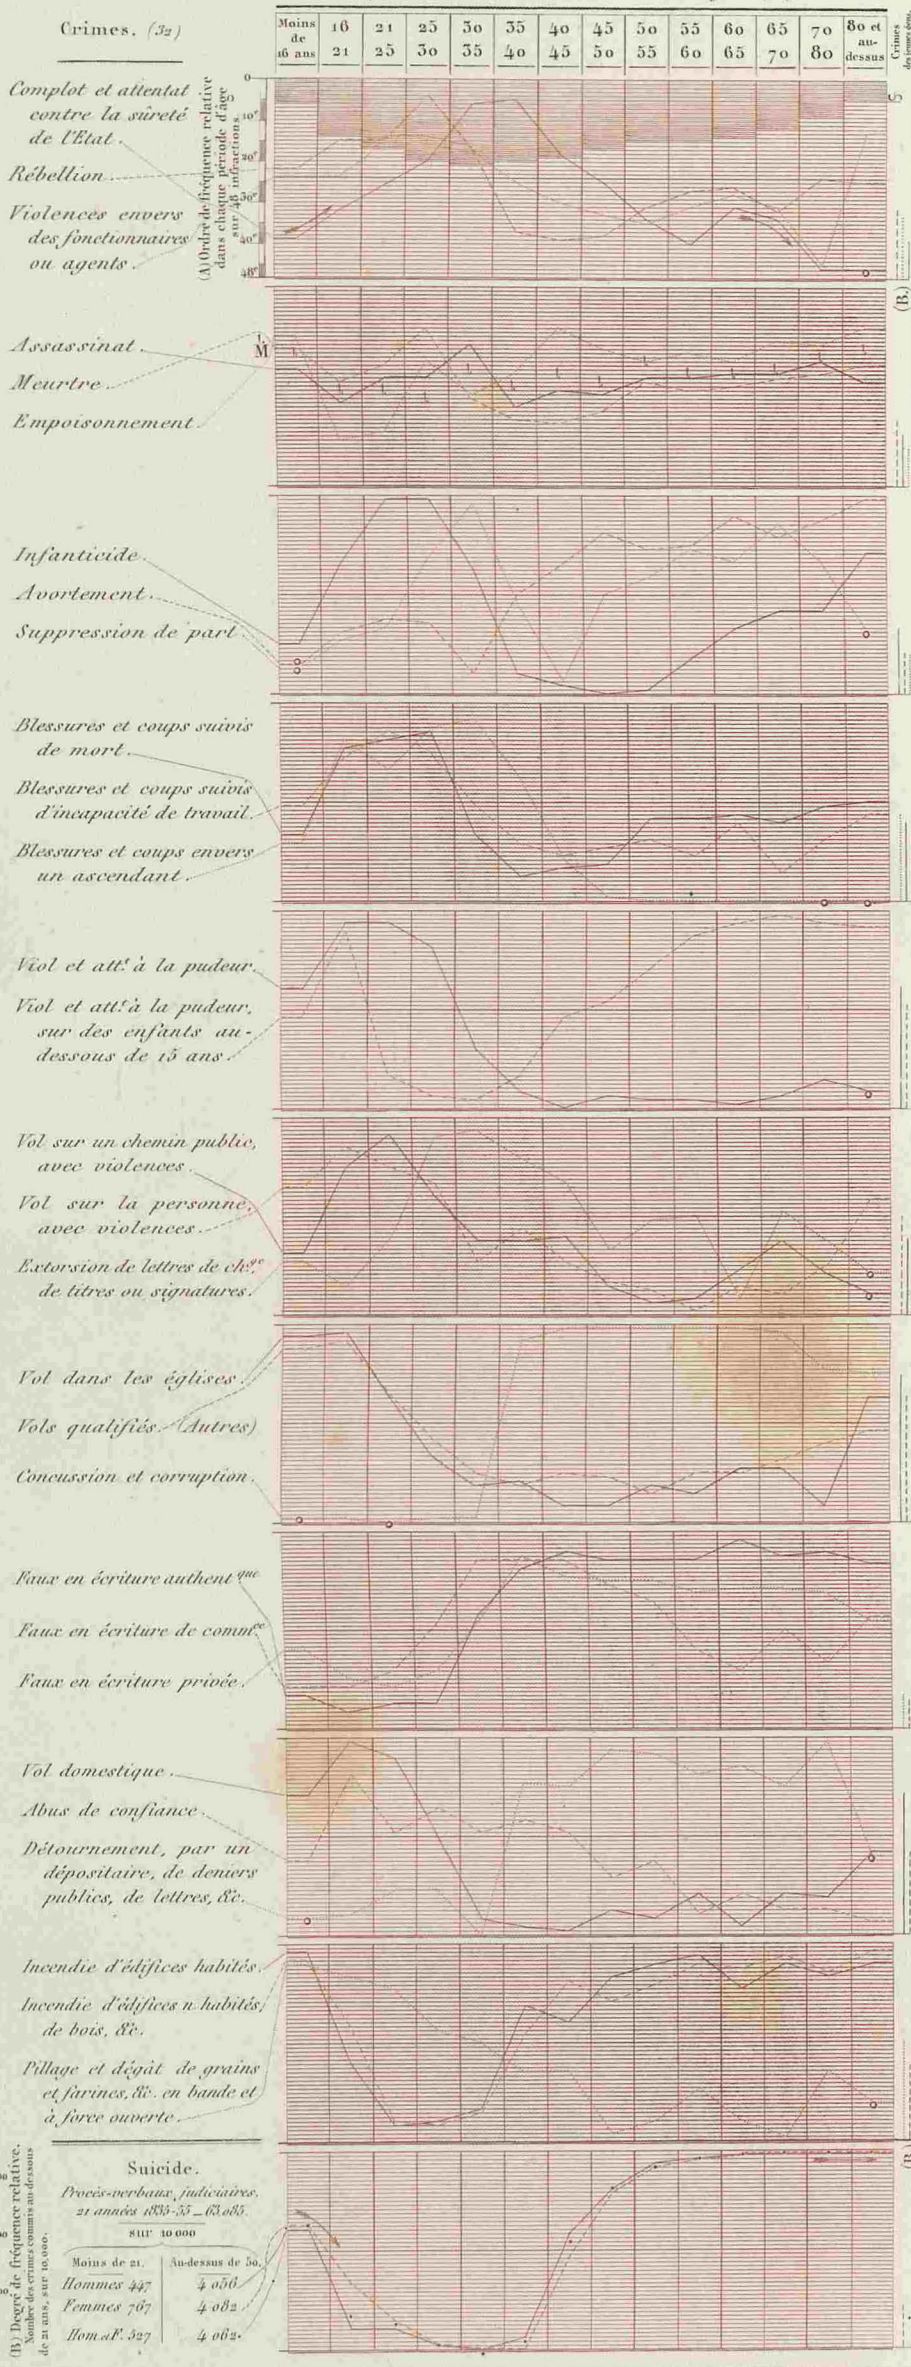 Crimes. (32)
Moins de 16 ans
16 21
21 25
25 30
30 35
35 40
40 45
45 50
50 55
55 60
60 65
65 70
70 80
80 et au-dessus
Crimes
(A) Ordre de fréquence relative
dans chaque période d'âge
sur 48 infractions.
0
10e
20e
30e
40e
48e
Complot et attentat
contre la sûreté
de l'Etat.
Rébellion
Violences envers
des fonctionnaires
ou agents.
(B.)
Assassinat.
M
Meurtre.
Empoisonnement
Infanticide.
Avortement.
Suppression de part.
Blessures et coups suivis
de mort.
Blessures et coups suivis
d'incapacité de travail.
Blessures et coups envers
un ascendant.
Viol et att.t à la pudeur.
Viol et att.t à la pudeur,
sur des enfants au-
dessous de 15 ans.
Vol sur un chemin public,
avec violences.
Vol sur la personne,
avec violences.
Extorsion de lettres de ch.ge
de titres ou signatures.
Vol dans les églises.
Vols qualifiés. (Autres)
Concussion et corruption.
Faux en écriture authent que
Faux en écriture de comm.ce
Faux en écriture privée.
Vol domestique.
Abus de confiance.
Détournement, par un
dépositaire, de deniers
publics, de lettres, &c.
Incendie d'édifices habités.
Incendie d'édifices n habités,
de bois, &c.
Pillage et dégât de grains
et farines, &c. en bande et
à force ouverte.
(B) Degré de fréquence relative.
Nombre des crimes commis au-dessous
de 21 ans, sur 10,000.
Suicide.
Procès-verbaux judiciaires.
21 années 1835-55 _ 63,085.
sur 10 000
Moins de 21. Au-dessus de 50.
Hommes 447 4 056
Femmes 767 4 082
Hom. et F. 527 4 062